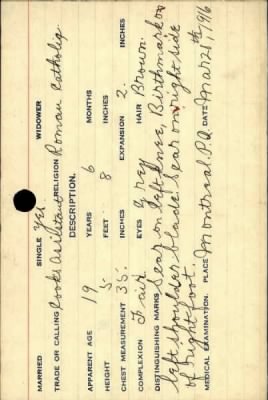 MARRIED SINGLE Yes WIDOWER
TRADE OR CALLING Cooks Assistant RELIGION Roman Catholic
DESCRIPTION.
APPARENT AGE 19 YEARS 6 MONTHS
HEIGHT 5 FEET 8 INCHES
CHEST MEASUREMENT 35 INCHES EXPANSION 2 INCHES
COMPLEXION Fair EYES Grey HAIR Brown
DISTINGUISHING MARKS Scar on left knee, Birthmark on
left shoulder blade. Scar on right side
of right foot.
MEDICAL EXAMINATION. PLACE Montreal. P.Q. DATE Mar 21st, 1916